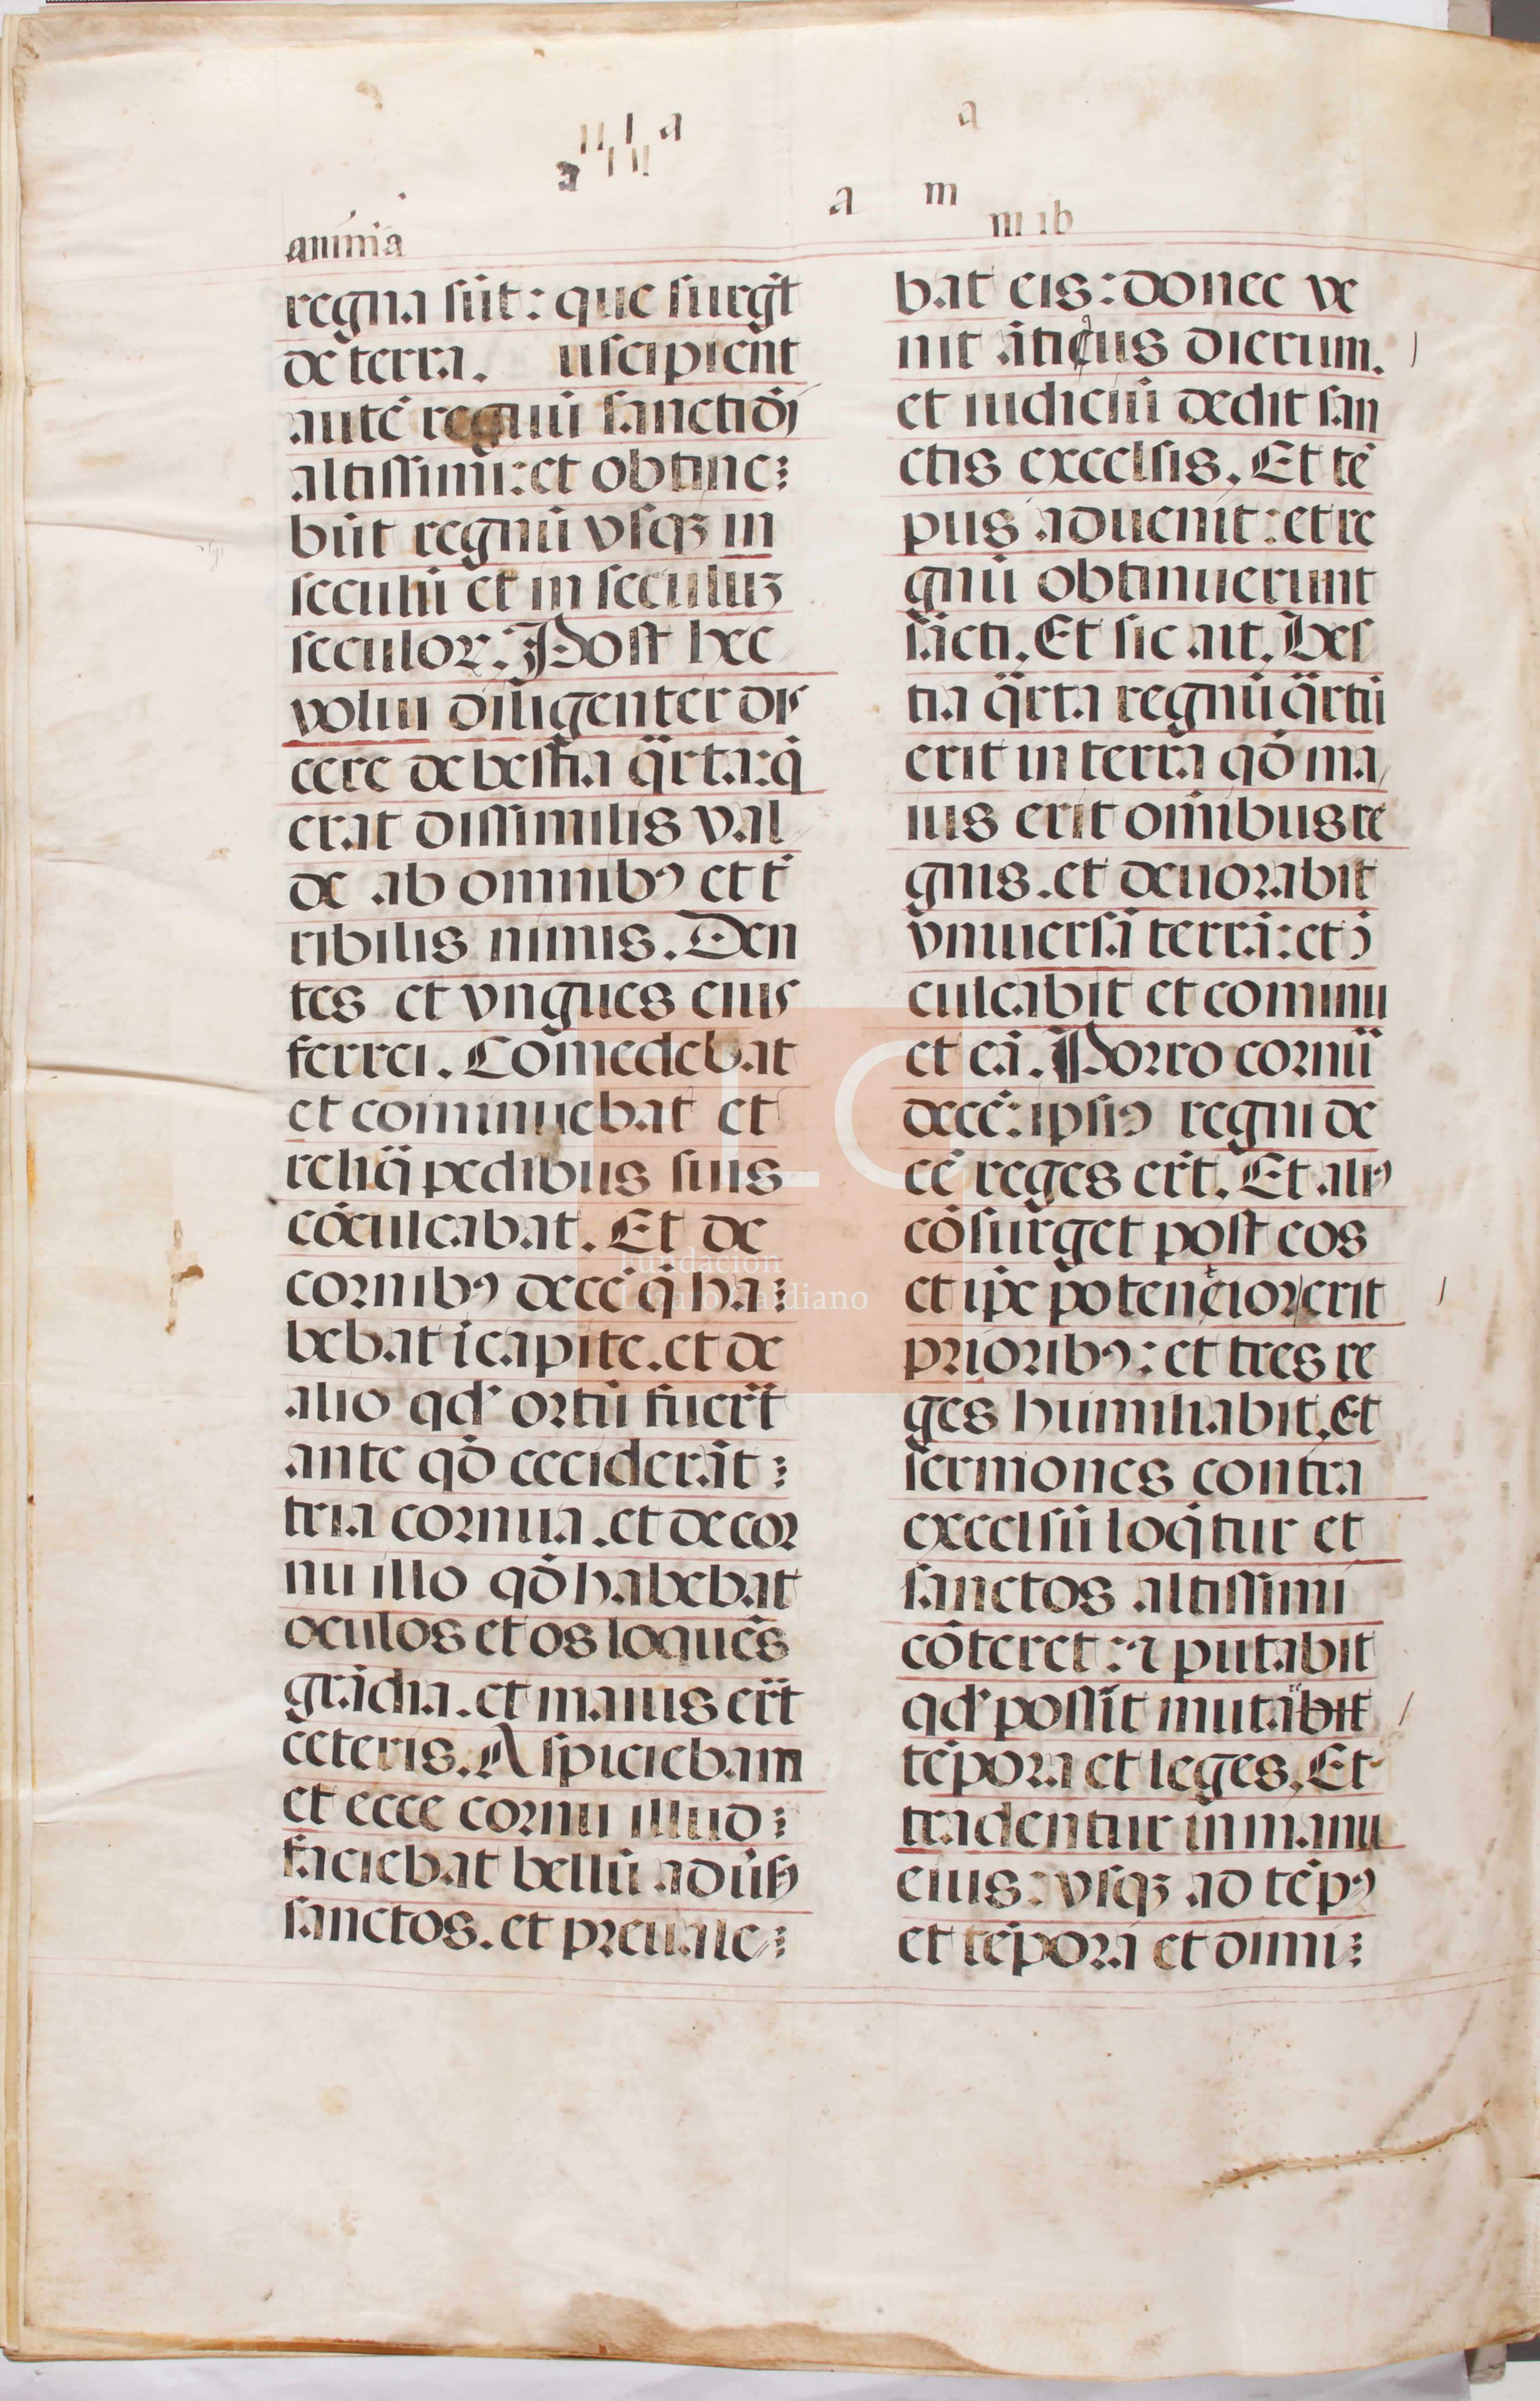 a
a
a m
m ib
anima
regna sūt: que surgūt
de terra. uscipiēnt
autē regnū sanctidi
altissimi: et obtine:
būt regnū vsqꝫ in
seculū et in seculuꝫ
seculoꝛ. Post hec
volui diligenter dis
cere de bestia qͣrta: q̄
erat dissimilis val
de ab omnibꝰ et t̄
ribilis nimis. Den
tes et vngues eius
ferrei. Comedebat
et cominuebat et
reliq̄ pedibus suis
cōculcabat. Et de
coꝛnibꝰ decē q̄ ha:
bebat ī capite. et de
alio qd' oꝛtū fuerͣt
ante qð ceciderāt:
tria coꝛnua. et de coꝛ
nu illo qð habebat
oculos et os loquēs
grādia. et maius erͣt
ceteris. Aspiciebam
et ecce coꝛnu illud:
faciebat bellū adūs
sanctos. et pꝛeuale:
bat eis: donec ve
nit ātiqus dierum.
et iudiciū dedit san
ctis excelsis. Et tē
pus aduenit: et re
gnū obtinuerunt
sācti. Et sic ait. Bes
tia qͣrta regnū qͣrtū
erit in terra qð ma
ius erit omībus re
gnis. et deuoꝛabit
vniuersā terrā: et ↄ̄
culcabit et cominu
et eā. Poꝛro coꝛnū
decē: ipsiꝰ regni de
cē reges erūt. Et aliꝰ
cōsurget post eos
et ip̄e potentioꝛ erit
pꝛioꝛibꝰ: et tres re
ges humiliabit. Et
sermones contra
excelsū loq̄tur et
sanctos altissimi
cōteret: ⁊ putabit
qd' possīt mutābit
tēpoꝛa et leges. Et
tradentur in manu
eius: vsqꝫ ad tēpꝰ
et tēpoꝛa et dimi:
Fundación
Lázaro Galdiano